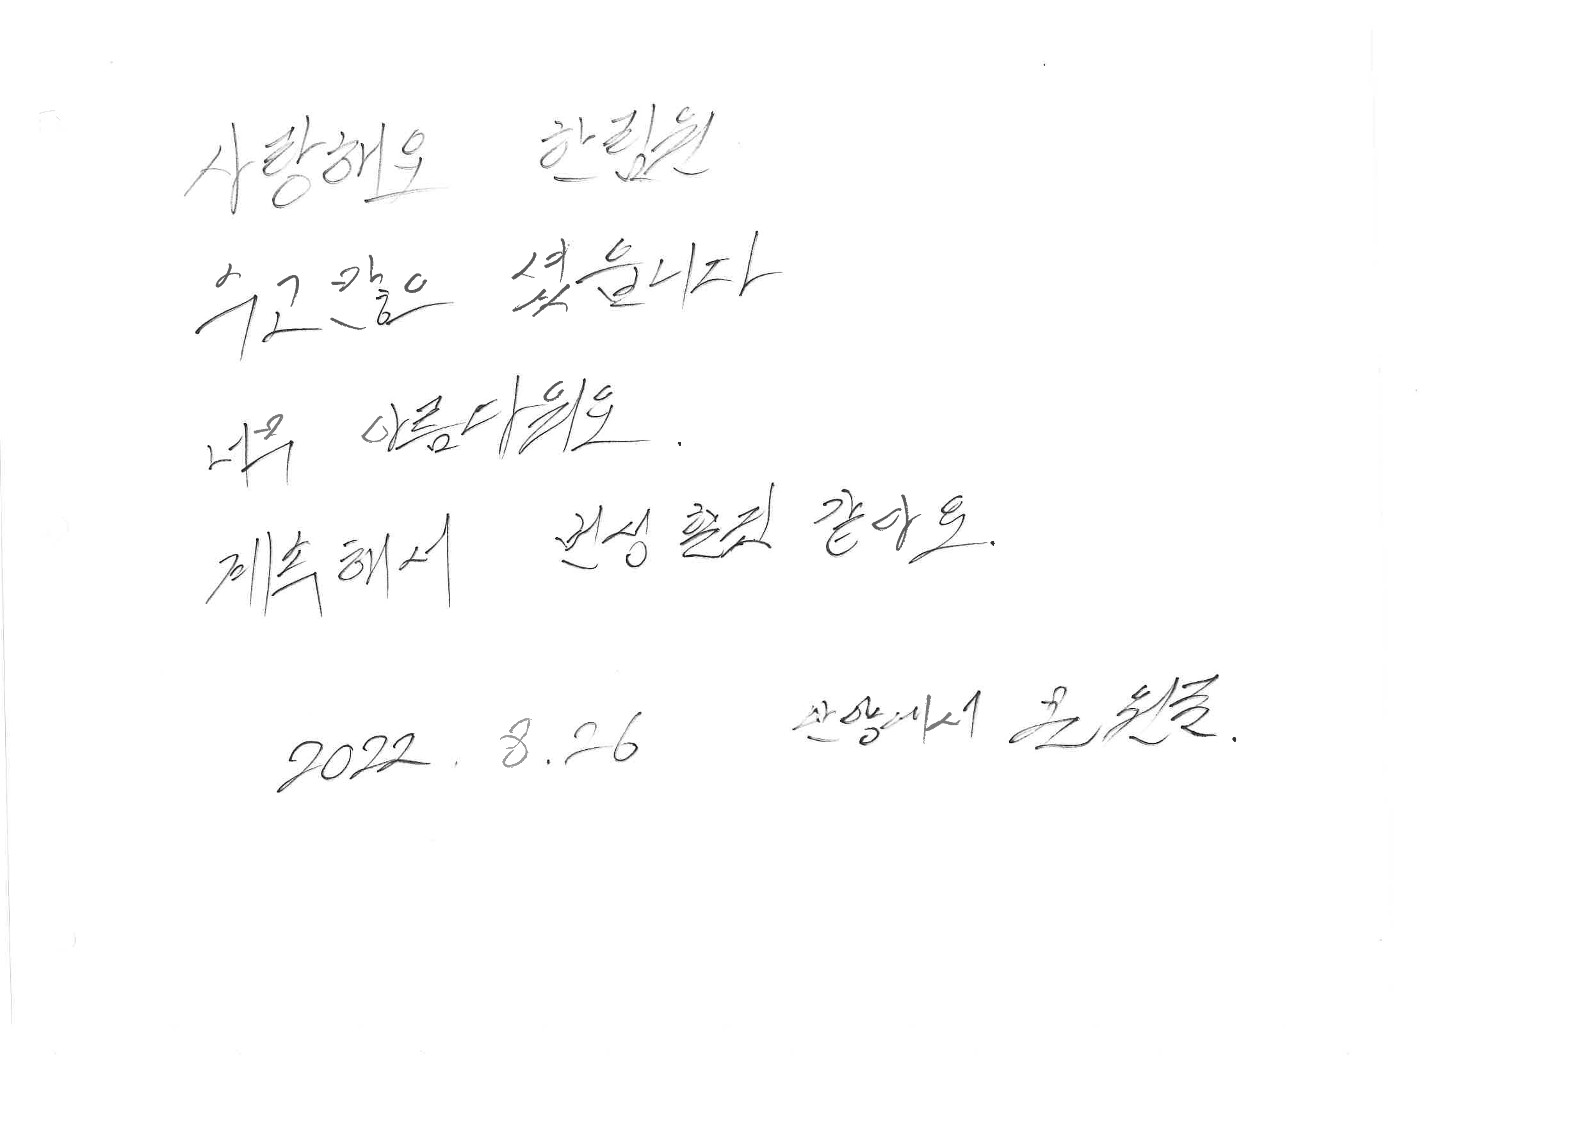 사랑해요 한림원
수고 많으 셨읍니다
너무 아름다워요.
계속해서 번성 할것 같아요.
2022. 8.26 안양에서 온